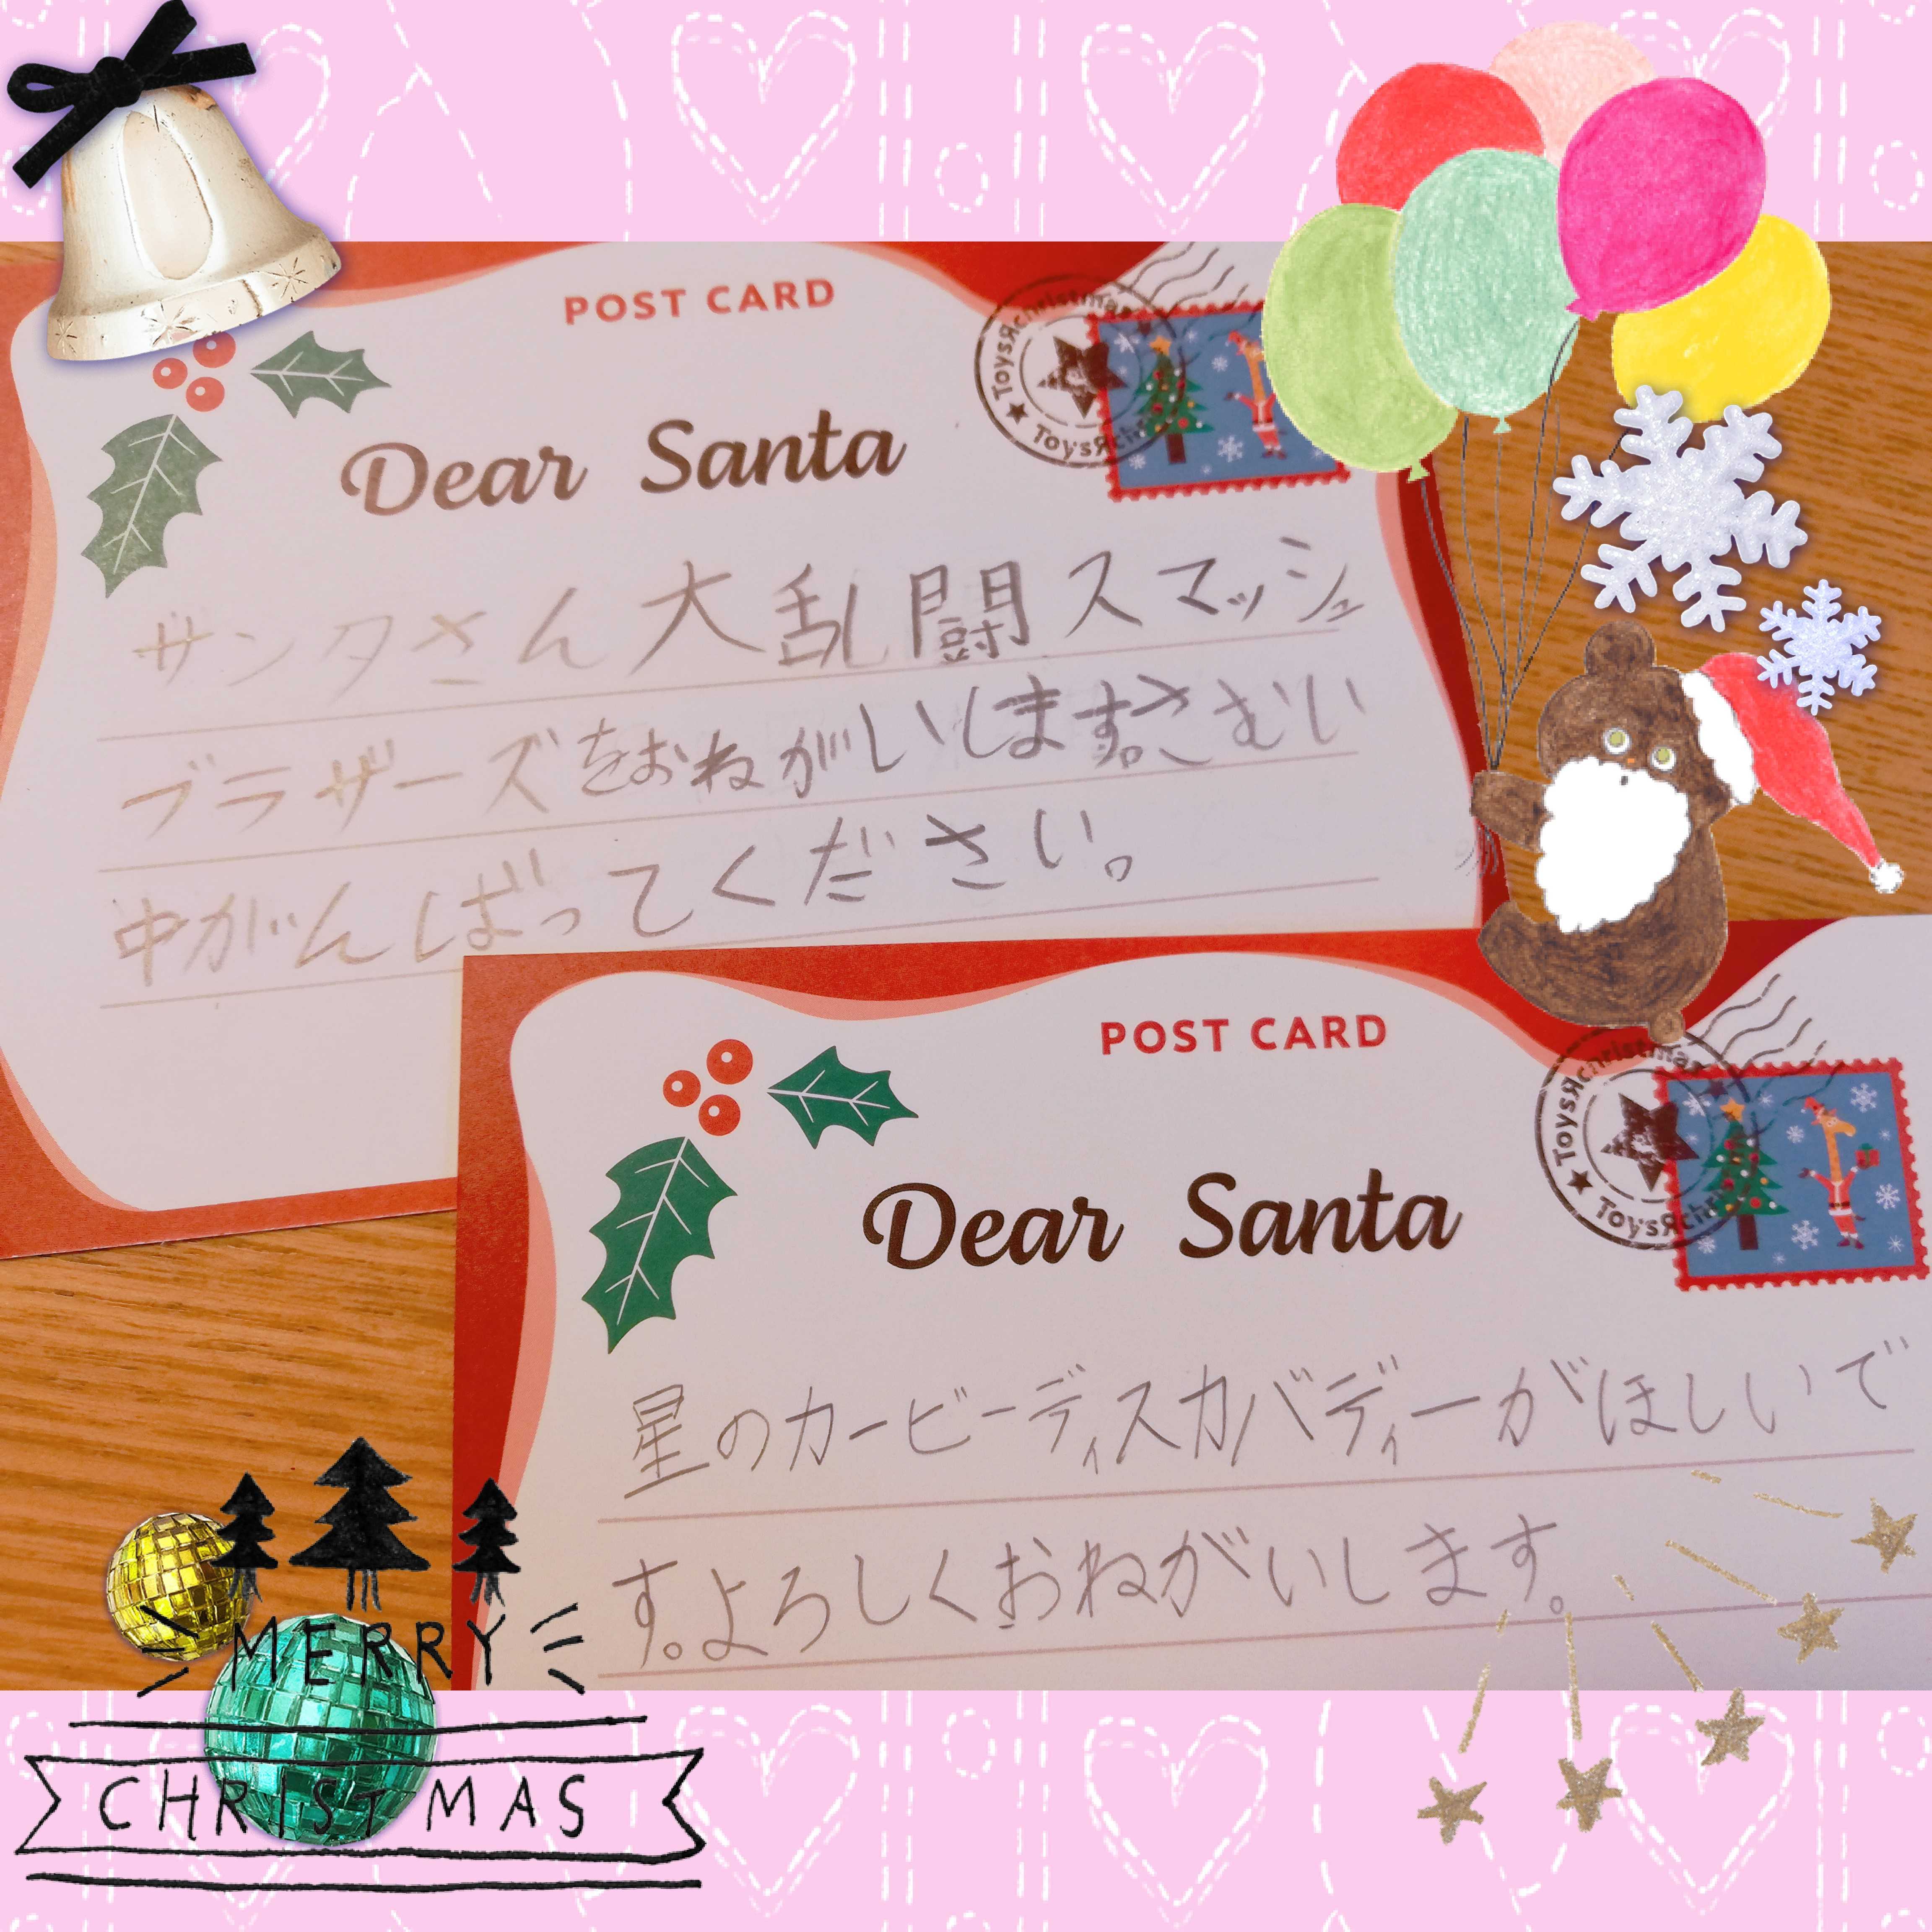 POST CARD
ToysЯchristmas
ToysЯchr
Dear Santa
サンタさん大乱闘スマッシュ
ブラザーズをおねがいします。さむい
中がんばってください。
POST CARD
ToysЯchristmas
ToysЯchr
Dear Santa
星のカービーディスカバディーがほしいで
す。よろしくおねがいします。
MERRY
CHRISTMAS